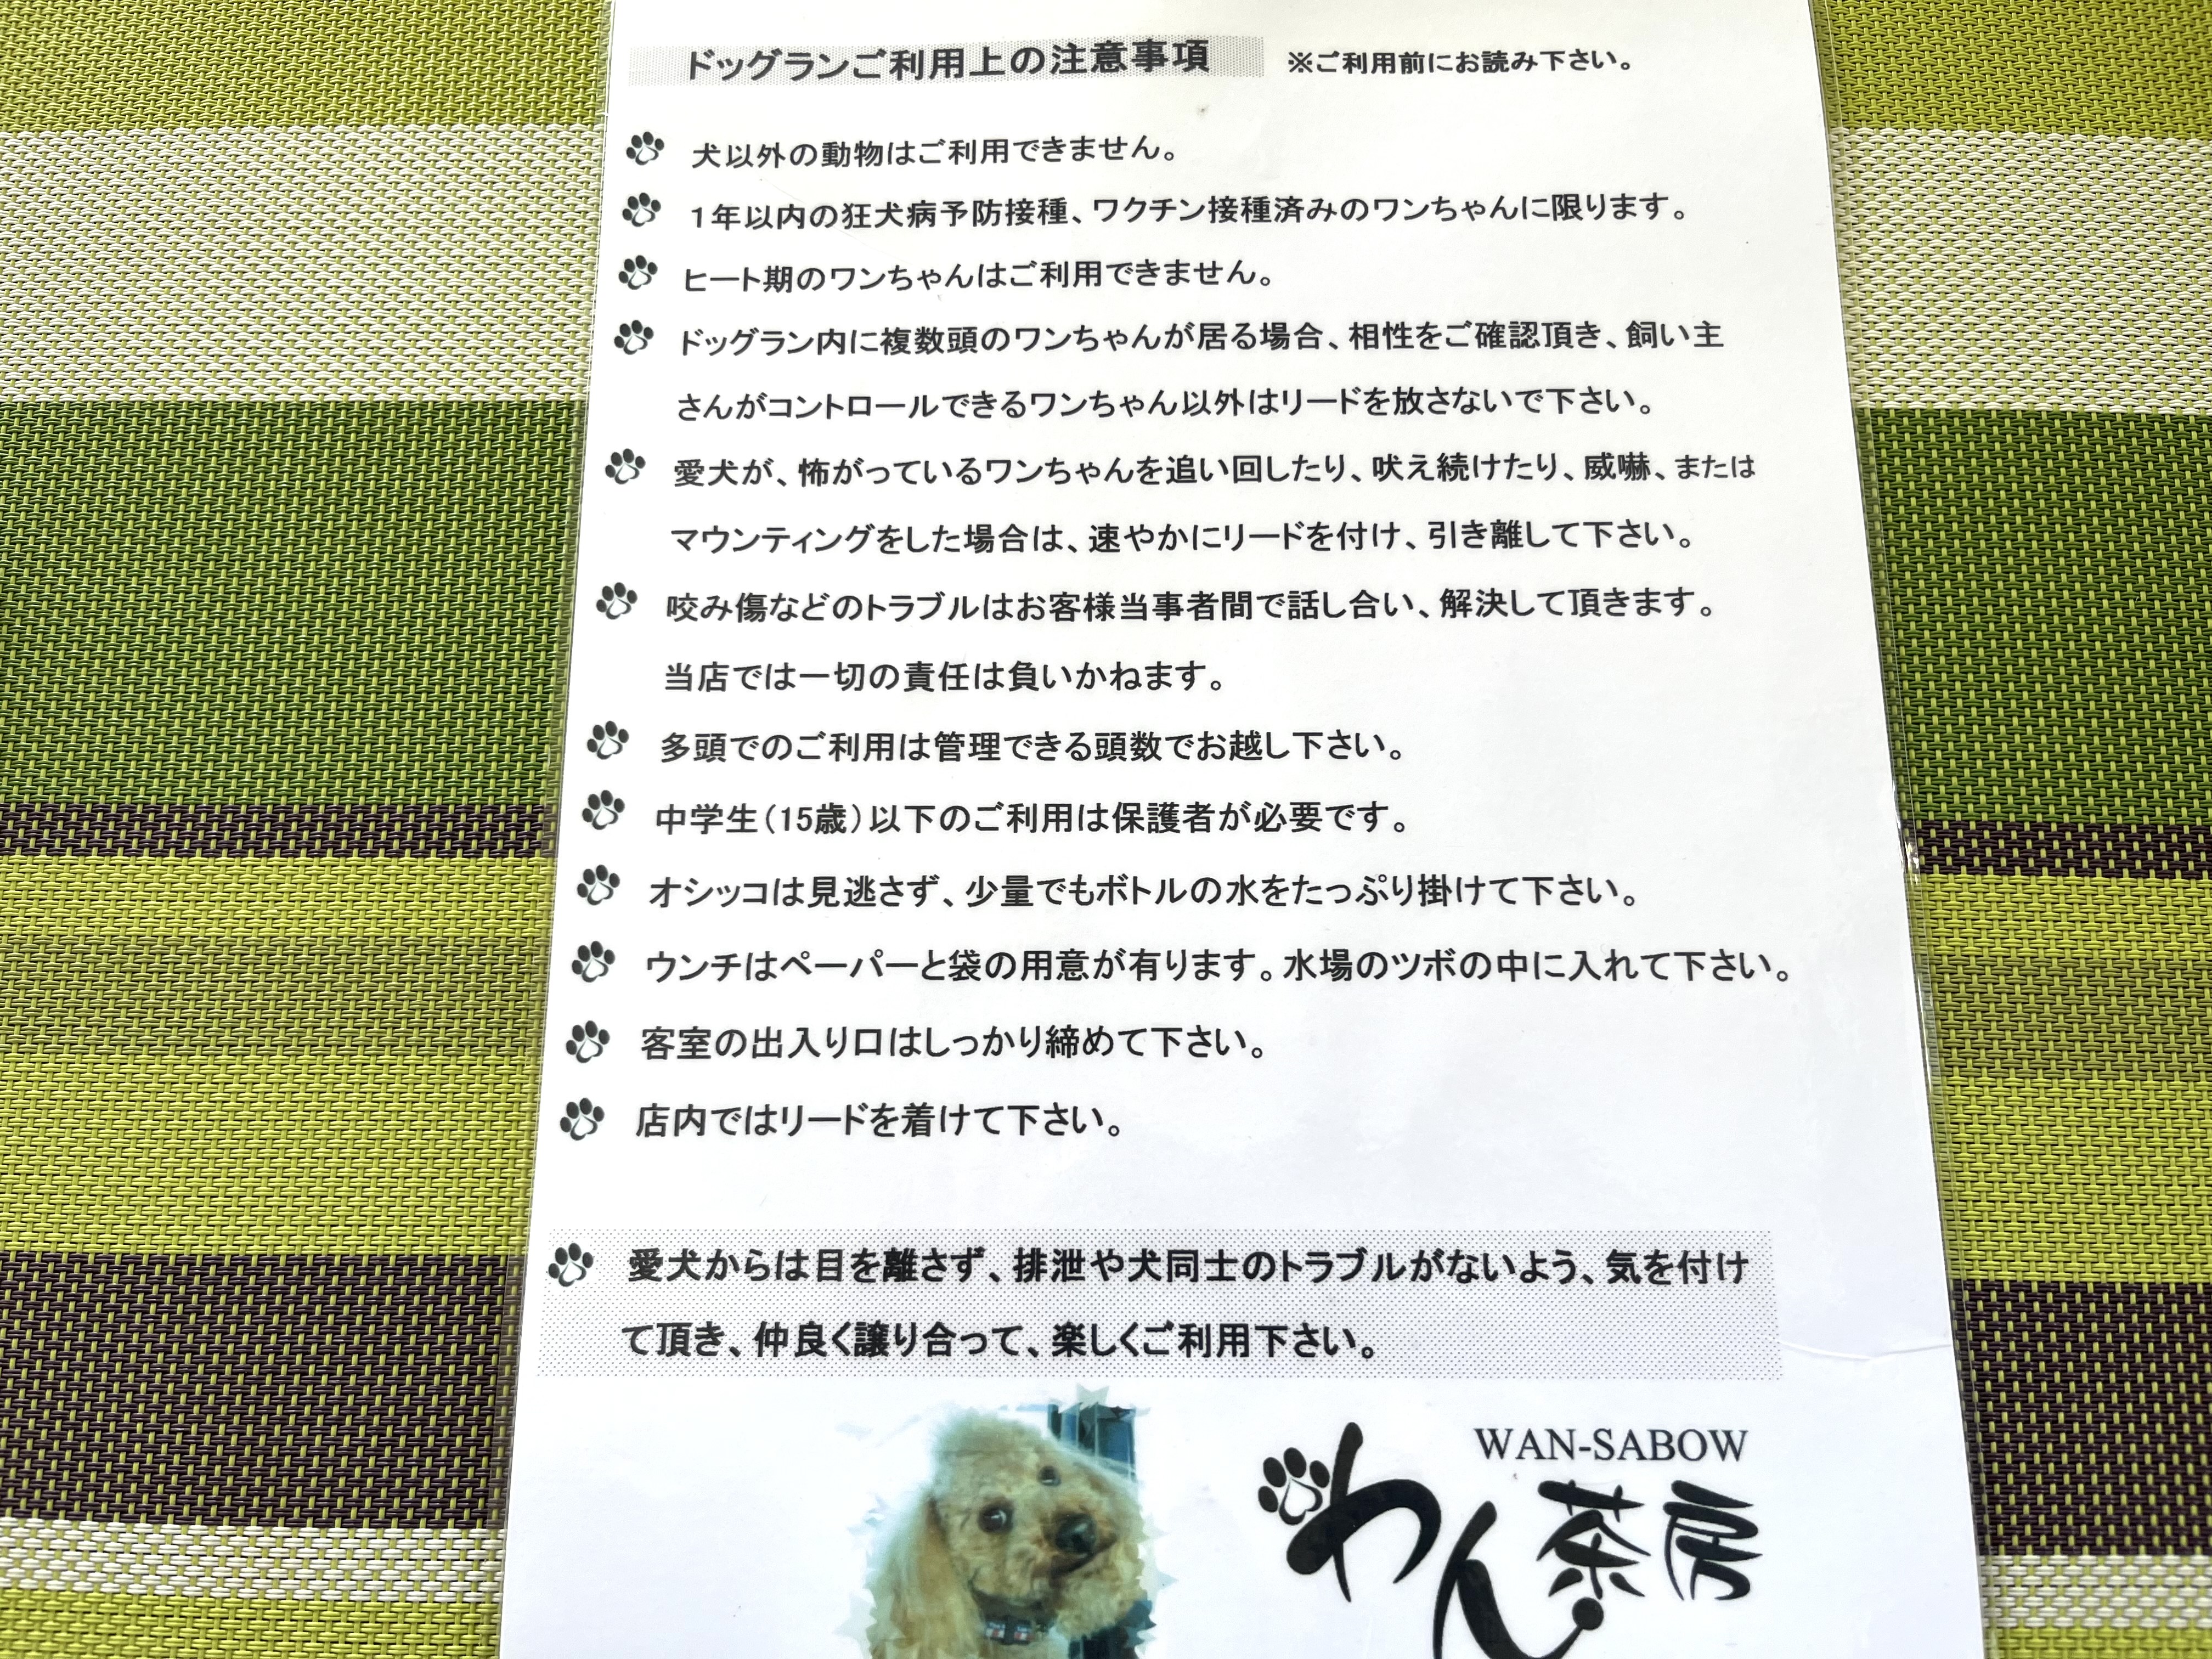 ドッグランご利用上の注意事項 ※ご利用前にお読み下さい。
犬以外の動物はご利用できません。
1年以内の狂犬病予防接種、ワクチン接種済みのワンちゃんに限ります。
ヒート期のワンちゃんはご利用できません。
ドッグラン内に複数頭のワンちゃんが居る場合、相性をご確認頂き、飼い主
さんがコントロールできるワンちゃん以外はリードを放さないで下さい。
愛犬が、怖がっているワンちゃんを追い回したり、吠え続けたり、威嚇、または
マウンティングをした場合は、速やかにリードを付け、引き離して下さい。
咬み傷などのトラブルはお客様当事者間で話し合い、解決して頂きます。
当店では一切の責任は負いかねます。
多頭でのご利用は管理できる頭数でお越し下さい。
中学生(15歳)以下のご利用は保護者が必要です。
オシッコは見逃さず、少量でもボトルの水をたっぷり掛けて下さい。
ウンチはペーパーと袋の用意が有ります。水場のツボの中に入れて下さい。
客室の出入り口はしっかり締めて下さい。
店内ではリードを着けて下さい。
愛犬からは目を離さず、排泄や犬同士のトラブルがないよう、気を付け
て頂き、仲良く譲り合って、楽しくご利用下さい。
WAN-SABOW
わん茶房